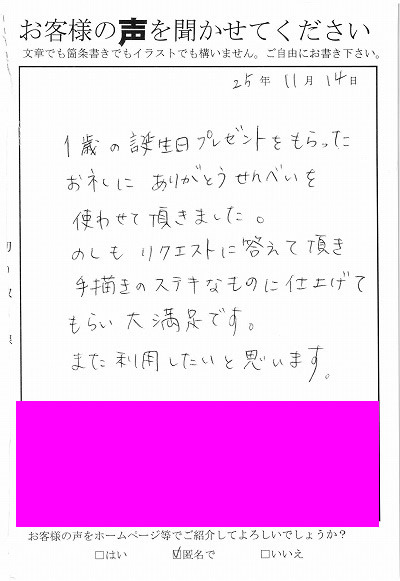 お客様の声を聞かせてください
文章でも箇条書きでもイラストでも構いません。ご自由にお書き下さい。
25年 11月 14日
1歳の誕生日プレゼントをもらった
お礼に ありがとうせんべいを
使わせて頂きました。
のしも リクエストに答えて頂き
手描きのステキなものに仕上げて
もらい 大満足です。
また利用したいと思います。
お客様の声をホームページ等でご紹介してよろしいでしょうか？
□はい ☑匿名で □いいえ